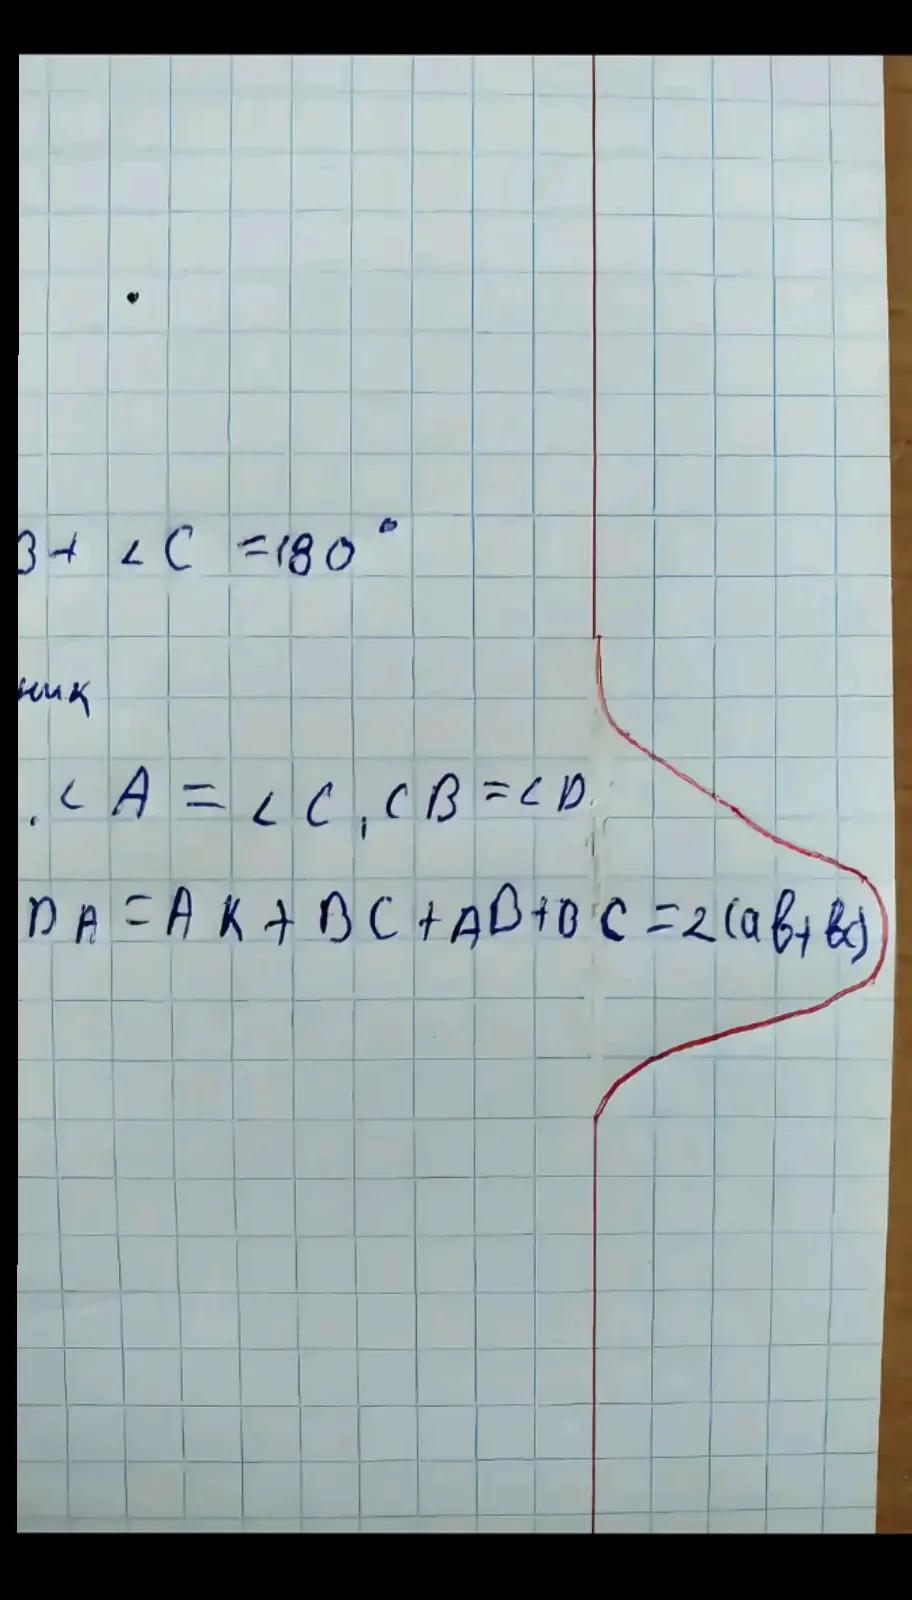 B+ ∠C =180°
ник
. ∠A = ∠C, ∠B =∠D.
DA =AK+BC+AB+BC=2(ab+bc)